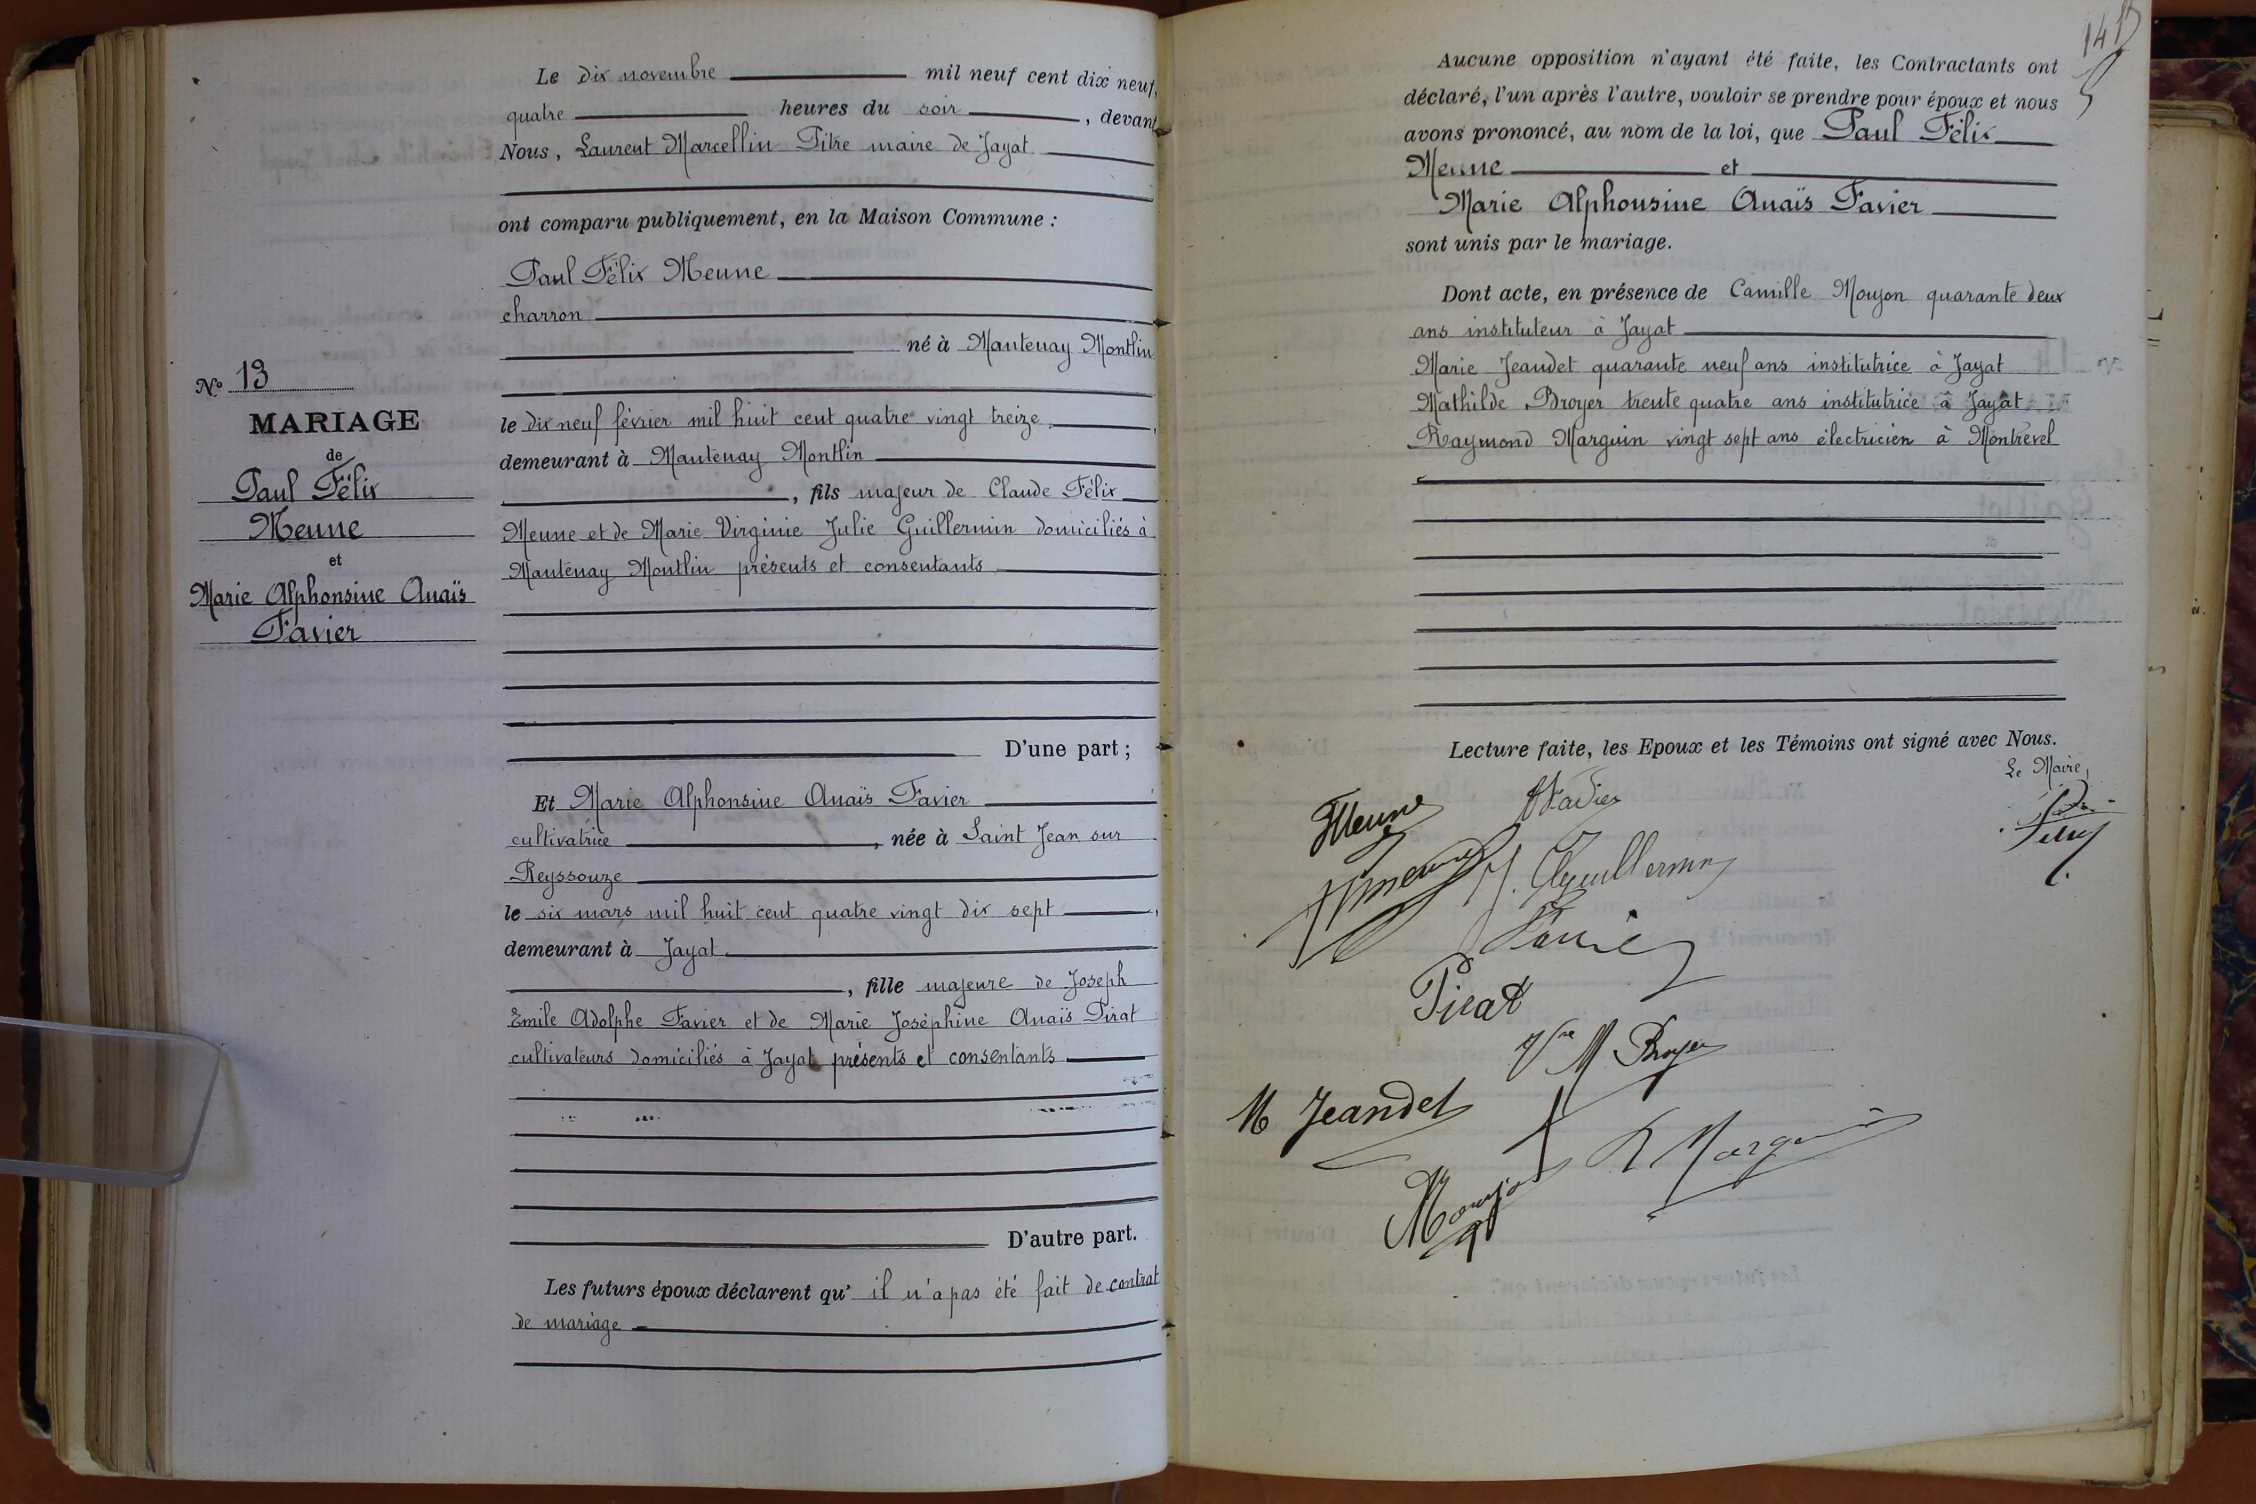 Le dix novembre mil neuf cent dix neuf,
quatre heures du soir, devant
Nous, Laurent Marcellin Pitre maire de Jayat
ont comparu publiquement, en la Maison Commune :
Paul Félix Meune
charron
né à Mantenay Montlin
le dix neuf février mil huit cent quatre vingt treize,
demeurant à Mantenay Montlin
, fils majeur de Claude Félix
Meune et de Marie Virginie Julie Guillermin domiciliés à
Mantenay Montlin présents et consentants
D'une part ;
Et Marie Alphonsine Anaïs Favier
cultivatrice, née à Saint Jean sur
Reyssouze
le six mars mil huit cent quatre vingt dix sept,
demeurant à Jayat
, fille majeure de Joseph
Emile Adolphe Favier et de Marie Joséphine Anaïs Pirat
cultivateurs domiciliés à Jayat présents et consentants
D'autre part.
Les futurs époux déclarent qu' il n'a pas été fait de contrat
de mariage
No 13
MARIAGE
de
Paul Félix
Meune
et
Marie Alphonsine Anaïs
Favier
Aucune opposition n'ayant été faite, les Contractants ont
déclaré, l'un après l'autre, vouloir se prendre pour époux et nous
avons prononcé, au nom de la loi, que Paul Félix
Meune et
Marie Alphonsine Anaïs Favier
sont unis par le mariage.
Dont acte, en présence de Camille Moujon quarante deux
ans instituteur à Jayat
Marie Jeandet quarante neuf ans institutrice à Jayat
Mathilde Broyer trente quatre ans institutrice à Jayat
Raymond Marguin vingt sept ans électricien à Montrevel
Lecture faite, les Epoux et les Témoins ont signé avec Nous.
Le Maire,
Meune
A Favier
Meune
Guillermin
Favier
Pirat
M Broyer
M Jeandet
R Marguin
Moujon